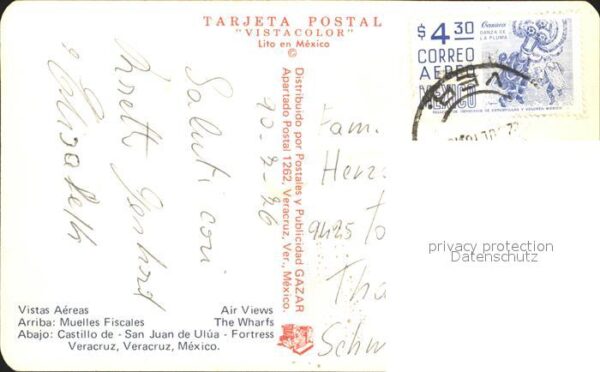 TARJETA POSTAL
"VISTACOLOR"
Lito en México
$4.30
Oaxaca
DANZA DE
LA PLUMA
CORREO
AEREO
MEXICO
Distribuido por Postales y Publicidad GAZAR
Apartado Postal 1262, Veracruz, Ver., México.
Saluti cari
Elisabeth
Fam.
Herz
9425 To
Tha
Schw
privacy protection
Datenschutz
Vistas Aéreas
Air Views
Arriba: Muelles Fiscales
The Wharfs
Abajo: Castillo de - San Juan de Ulúa - Fortress
Veracruz, Veracruz, México.